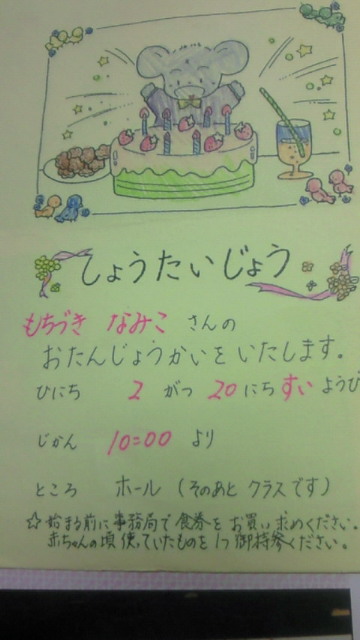 しょうたいじょう
もちづき なみこ さんの
おたんじょうかいをいたします。
ひにち 2 がつ 20 にち すい ようび
じかん 10:00 より
ところ ホール (そのあと クラスです)
☆ 始まる前に事務局で食券をお買い求めください。
赤ちゃんの頃使っていたものを1つ御持参ください。